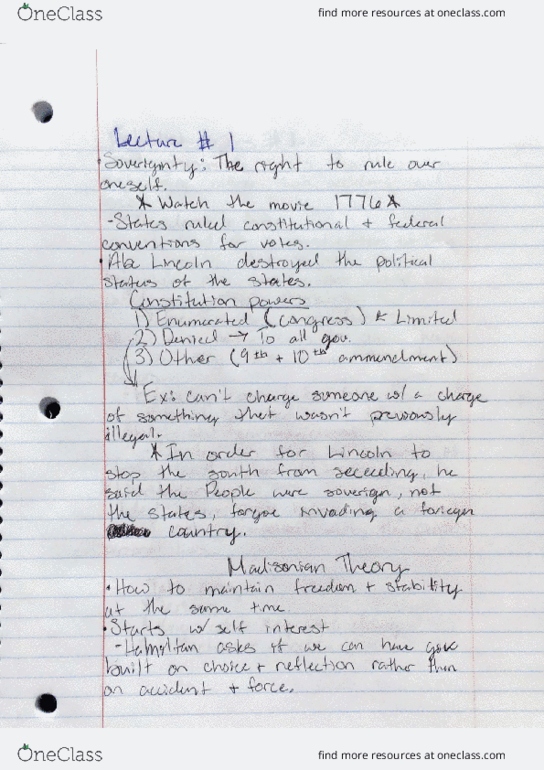 OneClass
find more resources at oneclass.com
Lecture # 1
• Soverignty: The right to rule over
oneself.
* Watch the movie 1776 *
-States ruled constitutional + federal
conventions for votes.
• Abe Lincoln destroyed the political
status of the states.
Constitution powers
1) Enumerated (congress) * Limited
2) Denied → To all gov.
3) Other (9th + 10th ammendment)
Ex: can't charge someone w/ a charge
of something that wasn't previously
illegal.
* In order for Lincoln to
stop the south from seceeding, he
said the People were soverign, not
the states, invading a foriegn
country.
Madisonian Theory
• How to maintain freedom + stability
at the same time.
• Starts w/ self interest
- Hamiltan asks if we can have gov.
built on choice + reflection rather than
on accident + force.
OneClass
find more resources at oneclass.com